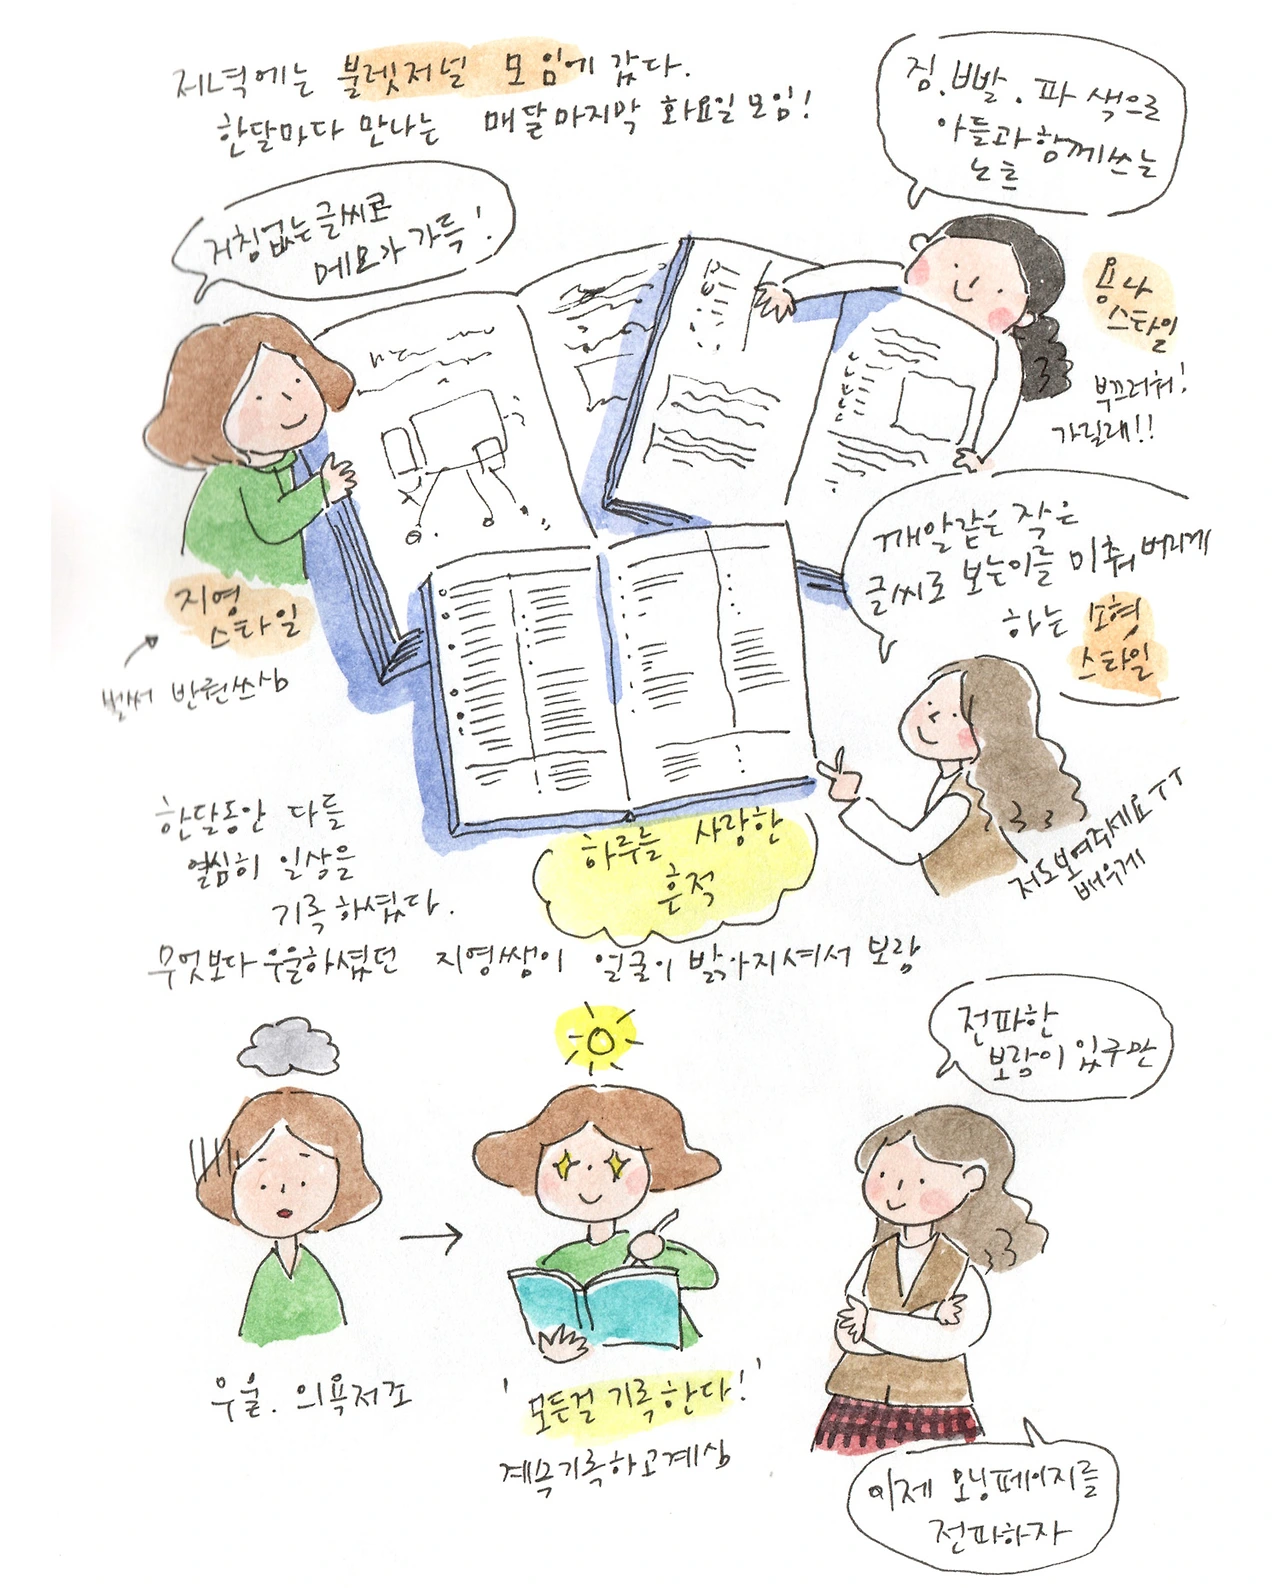 저녁에는 불렛저널 모임에 갔다.
한달마다 만나는 매달마지막 화요일모임!
검.빨.파 색으로
아들과함께쓰는
노트
거침없는글씨로
메모가 가득!
용나
스타일
부끄러워!
가릴래!!
깨알같은 작은
글씨로 보는이를 미춰버리게
하는 소형
스타일
지영
스타일
벌써 반권쓰심
저도보여주세요ㅜㅜ
배우게
한달동안 다들
열심히 일상을
기록하셨다.
하루를 사랑한
흔적
무엇보다 우울하셨던 지영쌤이 얼굴이 밝아지셔서 보람
전파한
보람이 있구만
우울. 의욕저조
'모든걸 기록한다!'
계속기록하고계심
이제 모닝페이지를
전파하자